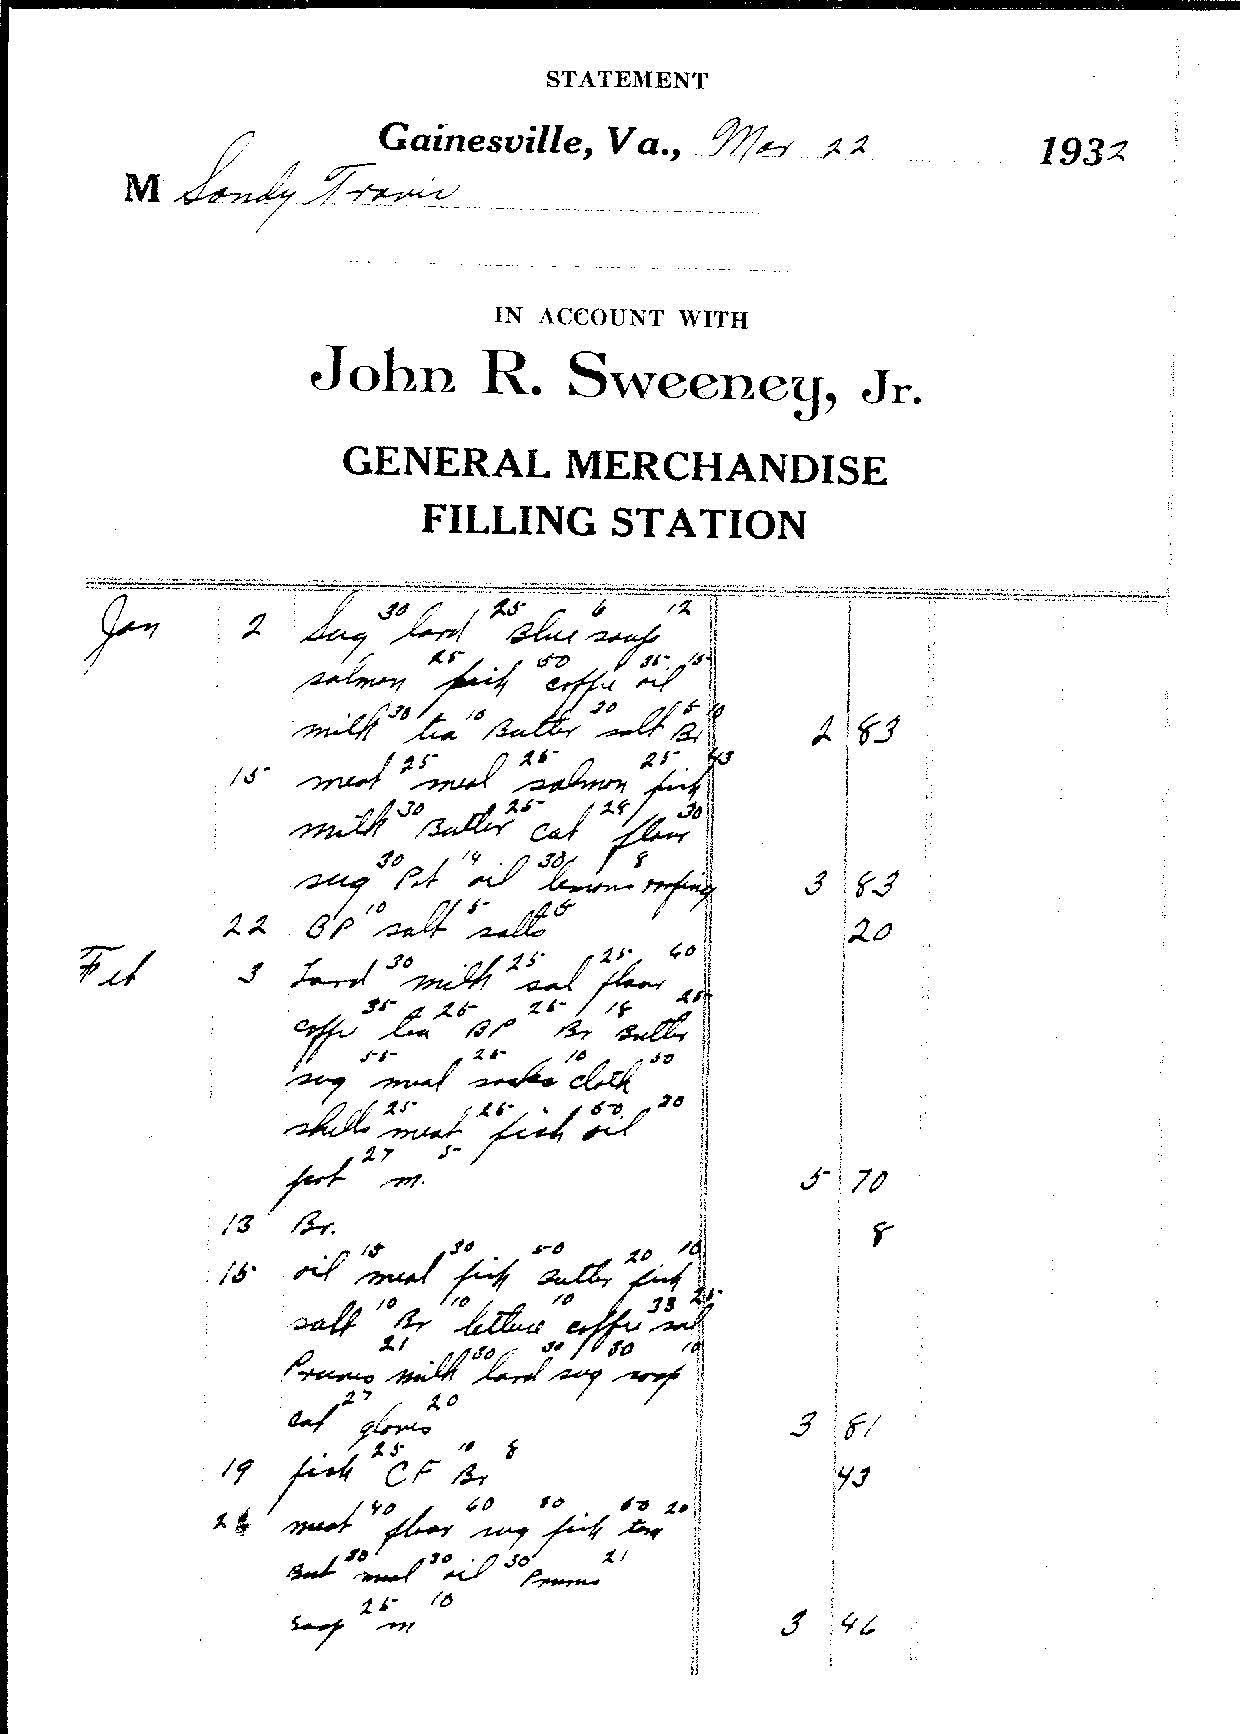 STATEMENT
Gainesville, Va., Mar 22 1932
M Sandy Travis
IN ACCOUNT WITH
John R. Sweeney, Jr.
GENERAL MERCHANDISE
FILLING STATION
Jan 2 Sug 30 lard 25 Blue 6 soap 12
salmon 25 fish 50 coffe 35 oil 15
milk 30 tea 10 Butter 20 salt 5 Br 10 2 83
15 meat 25 meal 25 salmon 25 fish 43
milk 30 Butter 25 Cat 28 flour 30
sug 30 Pot 14 oil 30 lemons 8 roofing 3 83
22 BP 10 salt 5 salts 5 20
Feb 3 Lard 30 milk 25 sal 25 flour 60
coffe 35 tea 25 BP 25 Br 18 Butter 25
sug 55 meal 25 socks 10 cloth 50
shells 25 meat 25 fish 50 oil 20
pot 27 m. 5 5 70
13 Br. 8
15 oil 15 meal 30 fish 50 Butter 20 fish 10
salt 10 Br 10 lettuce 10 coffe 33 sal 25
Prunes 21 milk 30 lard 30 sug 30 soap 10
Cat 27 gloves 20 3 81
19 fish 25 CF 10 Br 8 43
meat 40 flour 60 sug 30 fish 50 20
But 30 meal 30 oil 30 Prunes 21
Soap 25 m 10 3 46